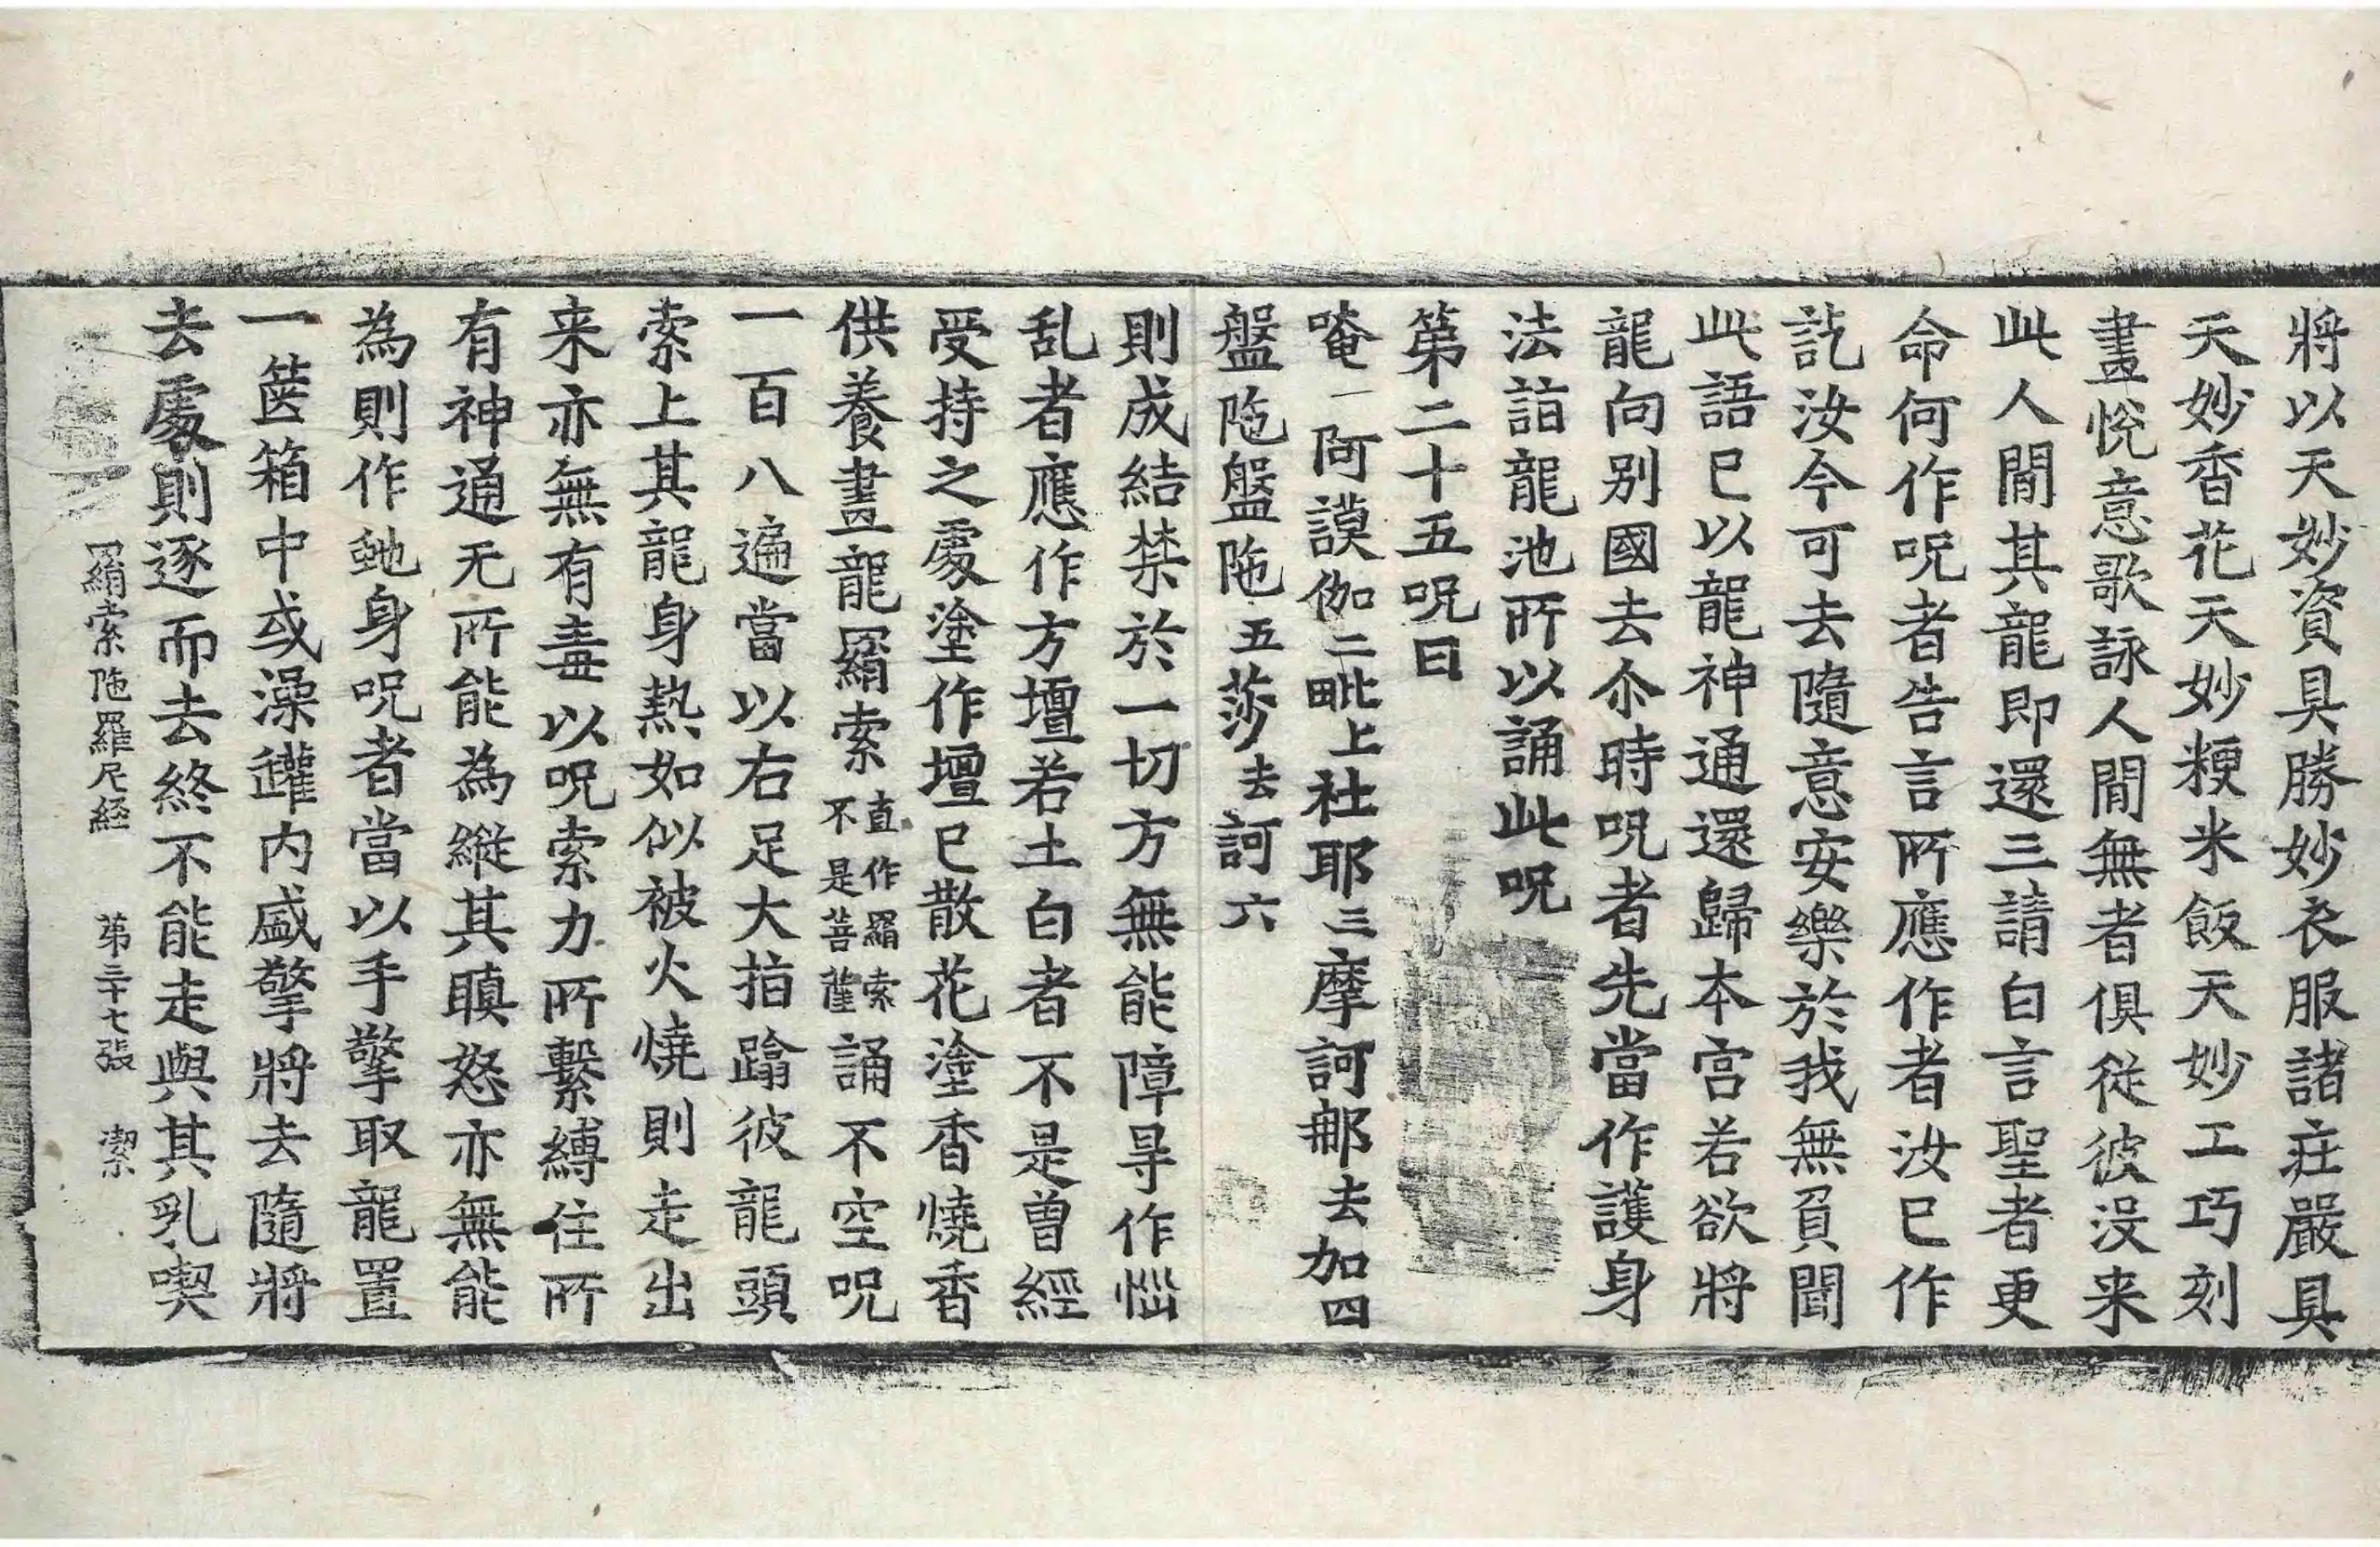 將以天妙資具勝妙衣服諸莊嚴具
天妙香花天妙粳米飯天妙工巧刻
畫悅意歌詠人間無者俱從彼沒来
此人間其龍即還三請白言聖者更
命何作呪者告言所應作者汝已作
訖汝今可去隨意安樂於我無負聞
此語已以龍神通還歸本宮若欲將
龍向別國去尒時呪者先當作護身
法詣龍池所以誦此呪
第二十五呪曰
唵一阿謨伽二毗上社耶三摩訶那去加四
盤陁盤陁五莎去訶六
則成結禁於一切方無能障㝵作惱
乱者應作方壇若土白者不是曽經
受持之處塗作壇已散花塗香燒香
供養畫龍羂索直作羂索不是菩薩誦不空呪
一百八遍當以右足大指蹹彼龍頭
索上其龍身熱如似被火燒則走出
来亦無有毒以呪索力所繫縛住所
有神通无所能為縱其瞋怒亦無能
為則作虵身呪者當以手擎取龍置
一篋箱中或澡罐内盛擎將去隨將
去處則逐而去終不能走與其乳喫
羂索陁羅尼経 苐三十七張 潔